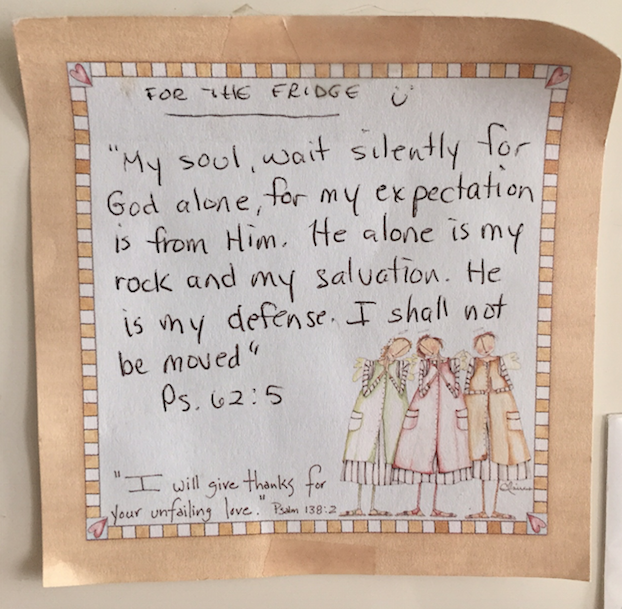 FOR THE FRIDGE
"My soul, wait silently for
God alone, for my expectation
is from Him. He alone is my
rock and my salvation. He
is my defense. I shall not
be moved"
Ps. 62:5
"I will give thanks for
your unfailing love." Psalm 138:2